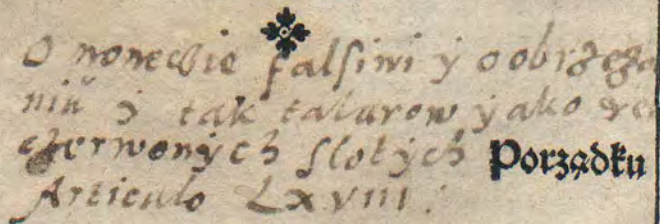 O monecie falsiwi y o obrzeza
niu y tak talarow y ako
czerwonych slotych Porządku
Articulo LXVIII.